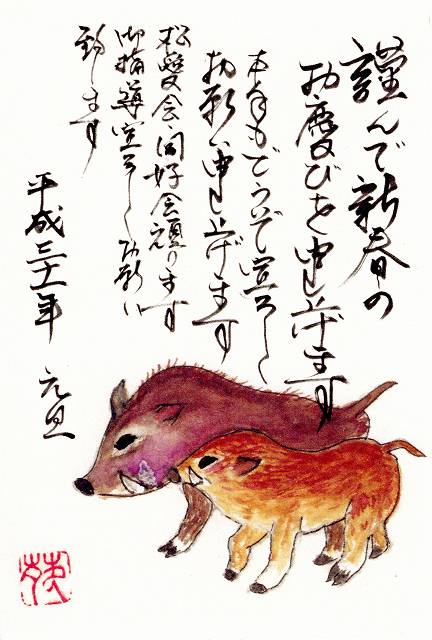 謹んで新春の
お慶びを申し上げます
本年もどうぞ宜しく
お願い申し上げます
会同好会頑ります
御指導宜しくお願い
致します
平成三十一年 元旦